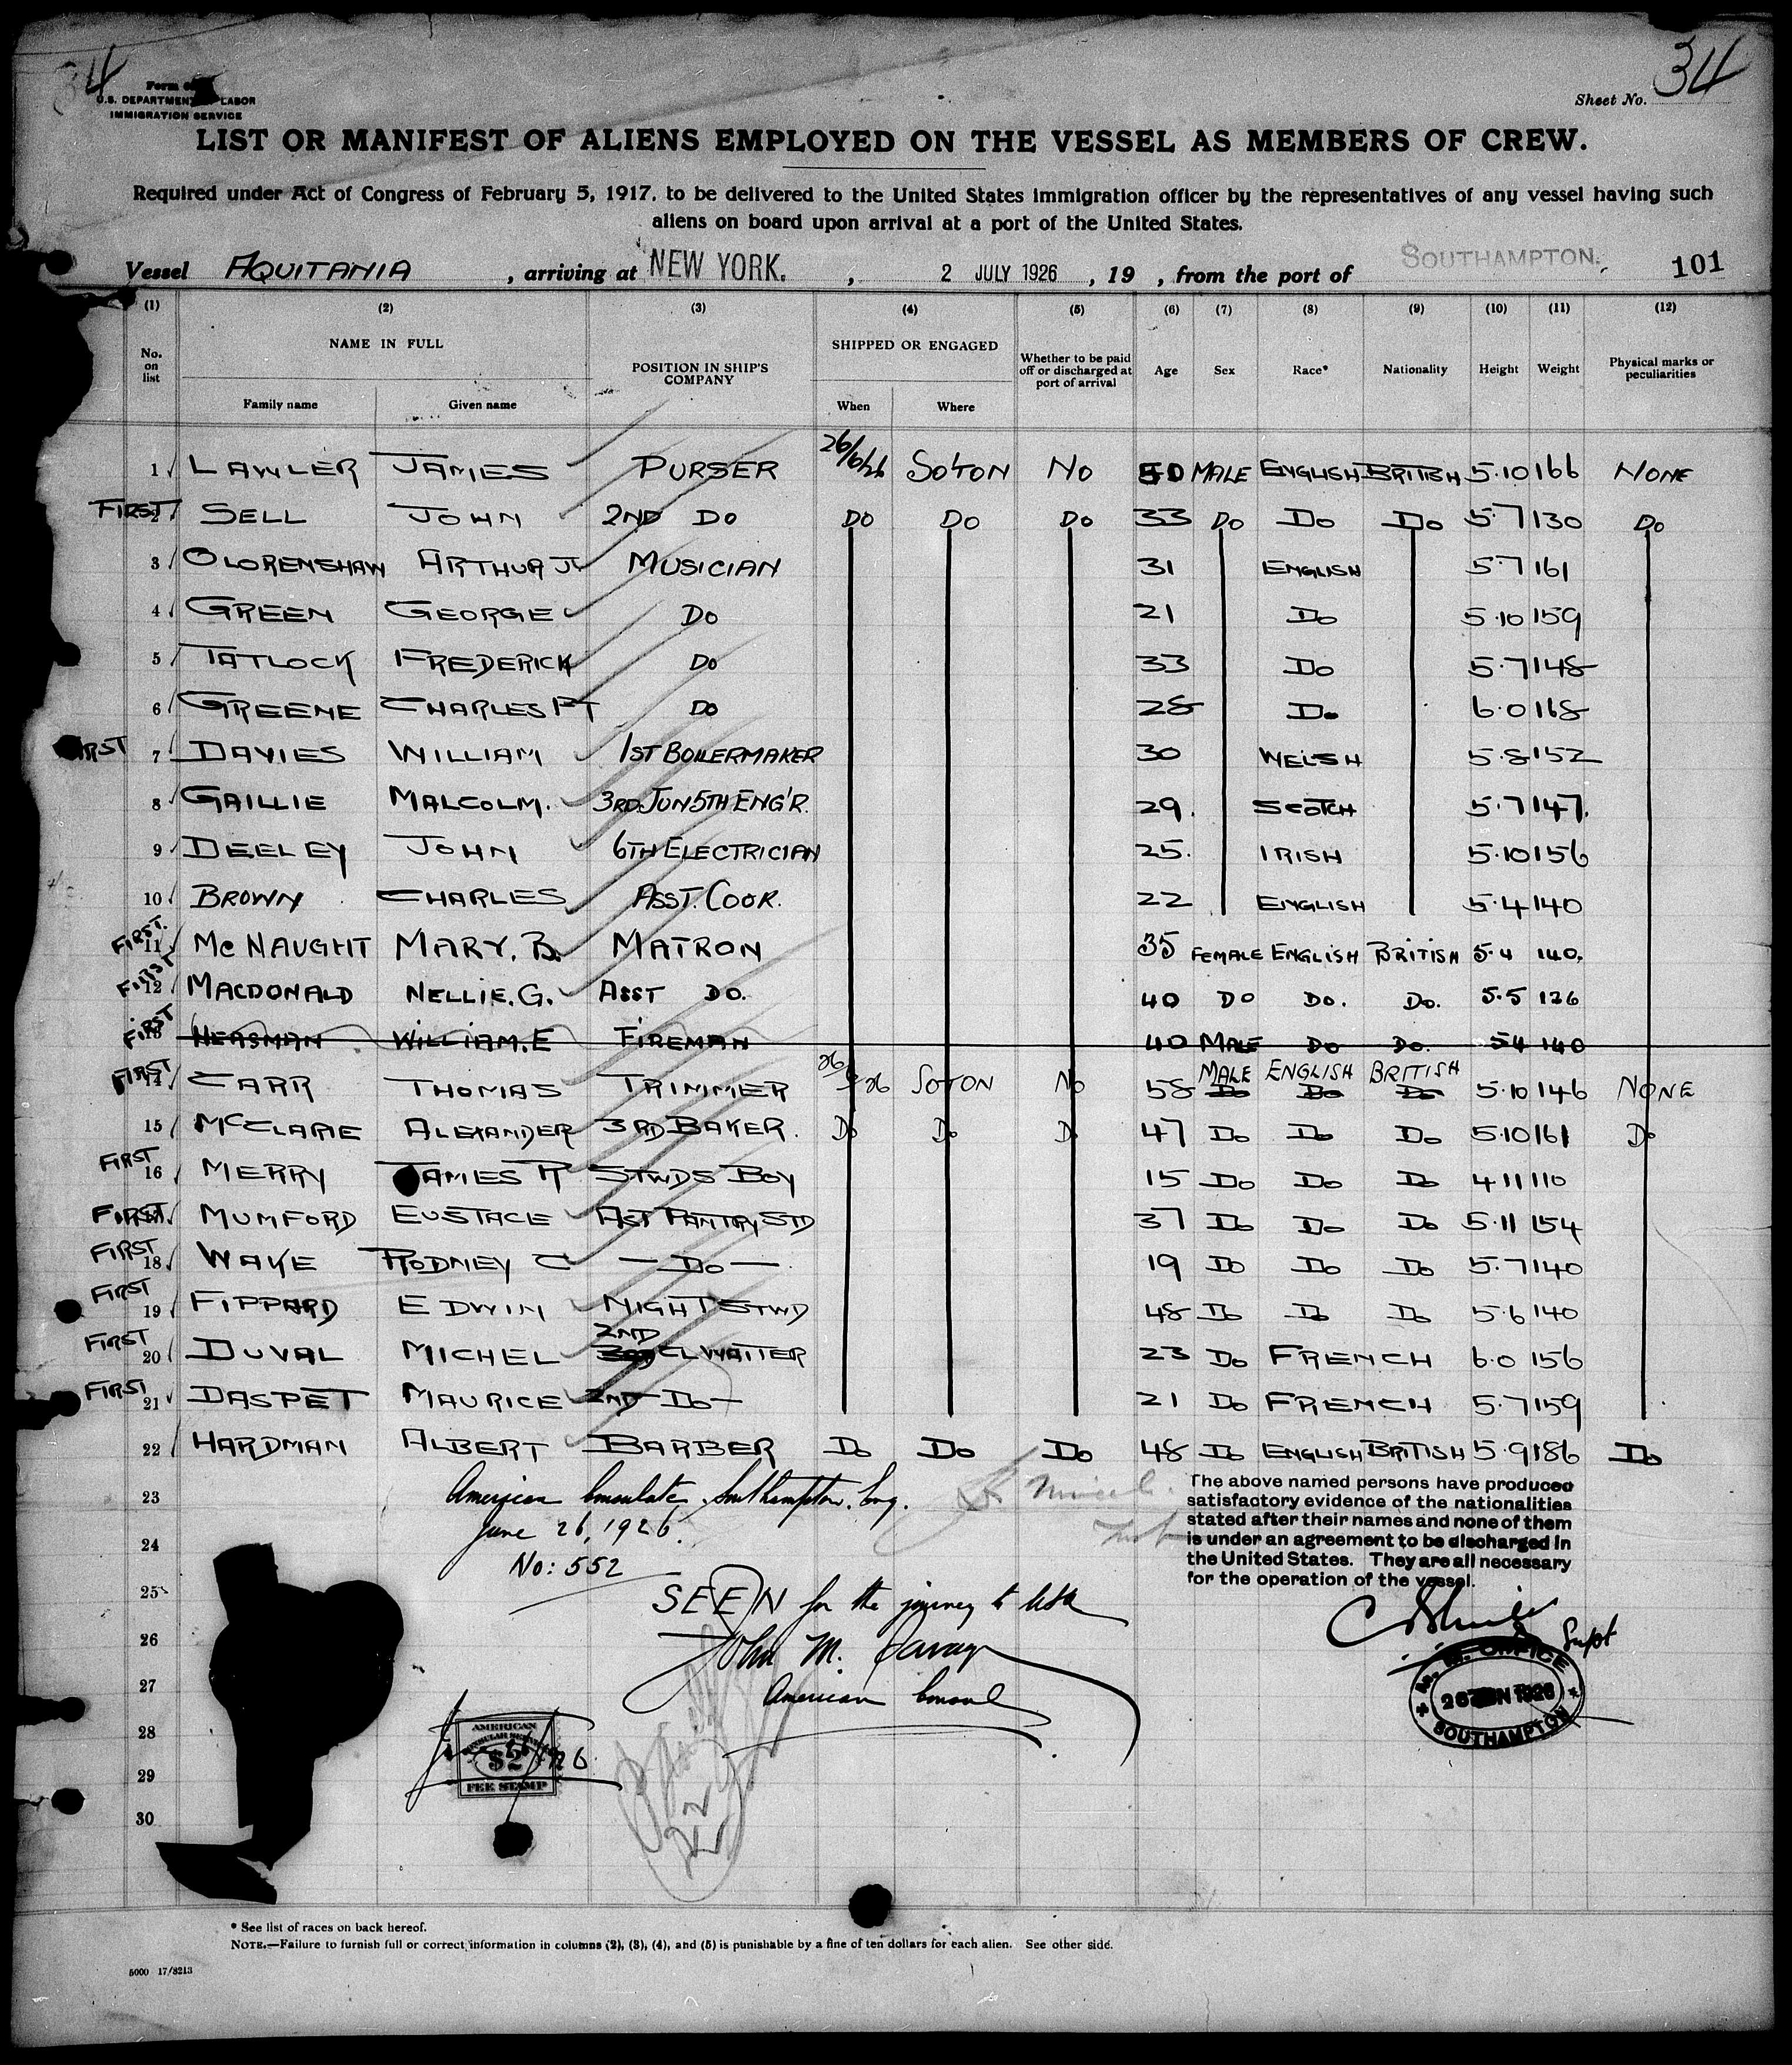 34
34
Form
U.S. DEPARTMENT OF LABOR
IMMIGRATION SERVICE
Sheet No.
LIST OR MANIFEST OF ALIENS EMPLOYED ON THE VESSEL AS MEMBERS OF CREW.
Required under Act of Congress of February 5, 1917, to be delivered to the United States immigration officer by the representatives of any vessel having such
aliens on board upon arrival at a port of the United States.
Vessel AQUITANIA, arriving at NEW YORK., 2 JULY 1926, 19 , from the port of SOUTHAMPTON. 101
(1) (2) (3) (4) (5) (6) (7) (8) (9) (10) (11) (12)
No. on list NAME IN FULL Family name Given name POSITION IN SHIP'S COMPANY SHIPPED OR ENGAGED When Where Whether to be paid off or discharged at port of arrival Age Sex Race* Nationality Height Weight Physical marks or peculiarities
1 LAWLER JAMES PURSER 26/6/26 SOTON NO 50 MALE ENGLISH BRITISH 5.10 166 NONE
FIRST 2 SELL JOHN 2ND DO DO DO DO 33 DO DO DO 5.7 130 DO
3 OLORENSHAW ARTHUR J. MUSICIAN 31 ENGLISH 5.7 161
4 GREEN GEORGE DO 21 DO 5.10 159
5 TATLOCK FREDERICK DO 33 DO 5.7 148
6 GREENE CHARLES P T DO 28 DO 6.0 168
FIRST 7 DAVIES WILLIAM 1ST BOILERMAKER 30 WELSH 5.8 152
8 GAILLIE MALCOLM. 3RD JUN 5TH ENG'R. 29. SCOTCH 5.7 147.
9 DEELEY JOHN 6TH ELECTRICIAN 25. IRISH 5.10 156
10 BROWN CHARLES ASST. COOK. 22 ENGLISH 5.4 140
FIRST. 11 MC NAUGHT MARY. B. MATRON 35 FEMALE ENGLISH BRITISH 5.4 140.
FIRST 12 MACDONALD NELLIE. G. ASST DO. 40 DO DO. DO. 5.5 126
FIRST 13 HEASMAN WILLIAM. E FIREMAN 40 MALE DO DO. 5 4 140
FIRST 14 CARR THOMAS TRIMMER 26/6/26 SOTON NO 58 MALE ENGLISH BRITISH 5.10 146 NONE
15 MCCLARE ALEXANDER 3RD BAKER. DO DO DO 47 DO DO DO 5.10 161 DO
FIRST 16 MERRY JAMES R STWDS BOY 15 DO DO DO 4.11 110
FIRST. MUMFORD EUSTACE AST PANTRY STD 37 DO DO DO 5.11 154
FIRST 18 WAKE RODNEY C — DO — 19 DO DO DO 5.7 140
FIRST 19 FIPPARD EDWIN NIGHT STWD 48 DO DO DO 5.6 140
FIRST 20 DUVAL MICHEL 2ND CL WAITER 23 DO FRENCH 6.0 156
FIRST 21 DASPET MAURICE 2ND — DO — 21 DO FRENCH 5.7 159
22 HARDMAN ALBERT BARBER DO DO DO 48 DO ENGLISH BRITISH 5.9 186 DO
23
24
25
26
27
28
29
30
American Consulate, Southampton, Eng.
June 26, 1926.
No: 552
SEEN for the journey to USA
John M. Savage
American Consul
AMERICAN
CONSULAR SERVICE
$2
FEE STAMP
The above named persons have produced
satisfactory evidence of the nationalities
stated after their names and none of them
is under an agreement to be discharged in
the United States. They are all necessary
for the operation of the vessel.
Supt
M. M. OFFICE
26 JUN 1926
SOUTHAMPTON
* See list of races on back hereof.
NOTE.—Failure to furnish full or correct information in columns (2), (3), (4), and (5) is punishable by a fine of ten dollars for each alien. See other side.
5000 17/8213